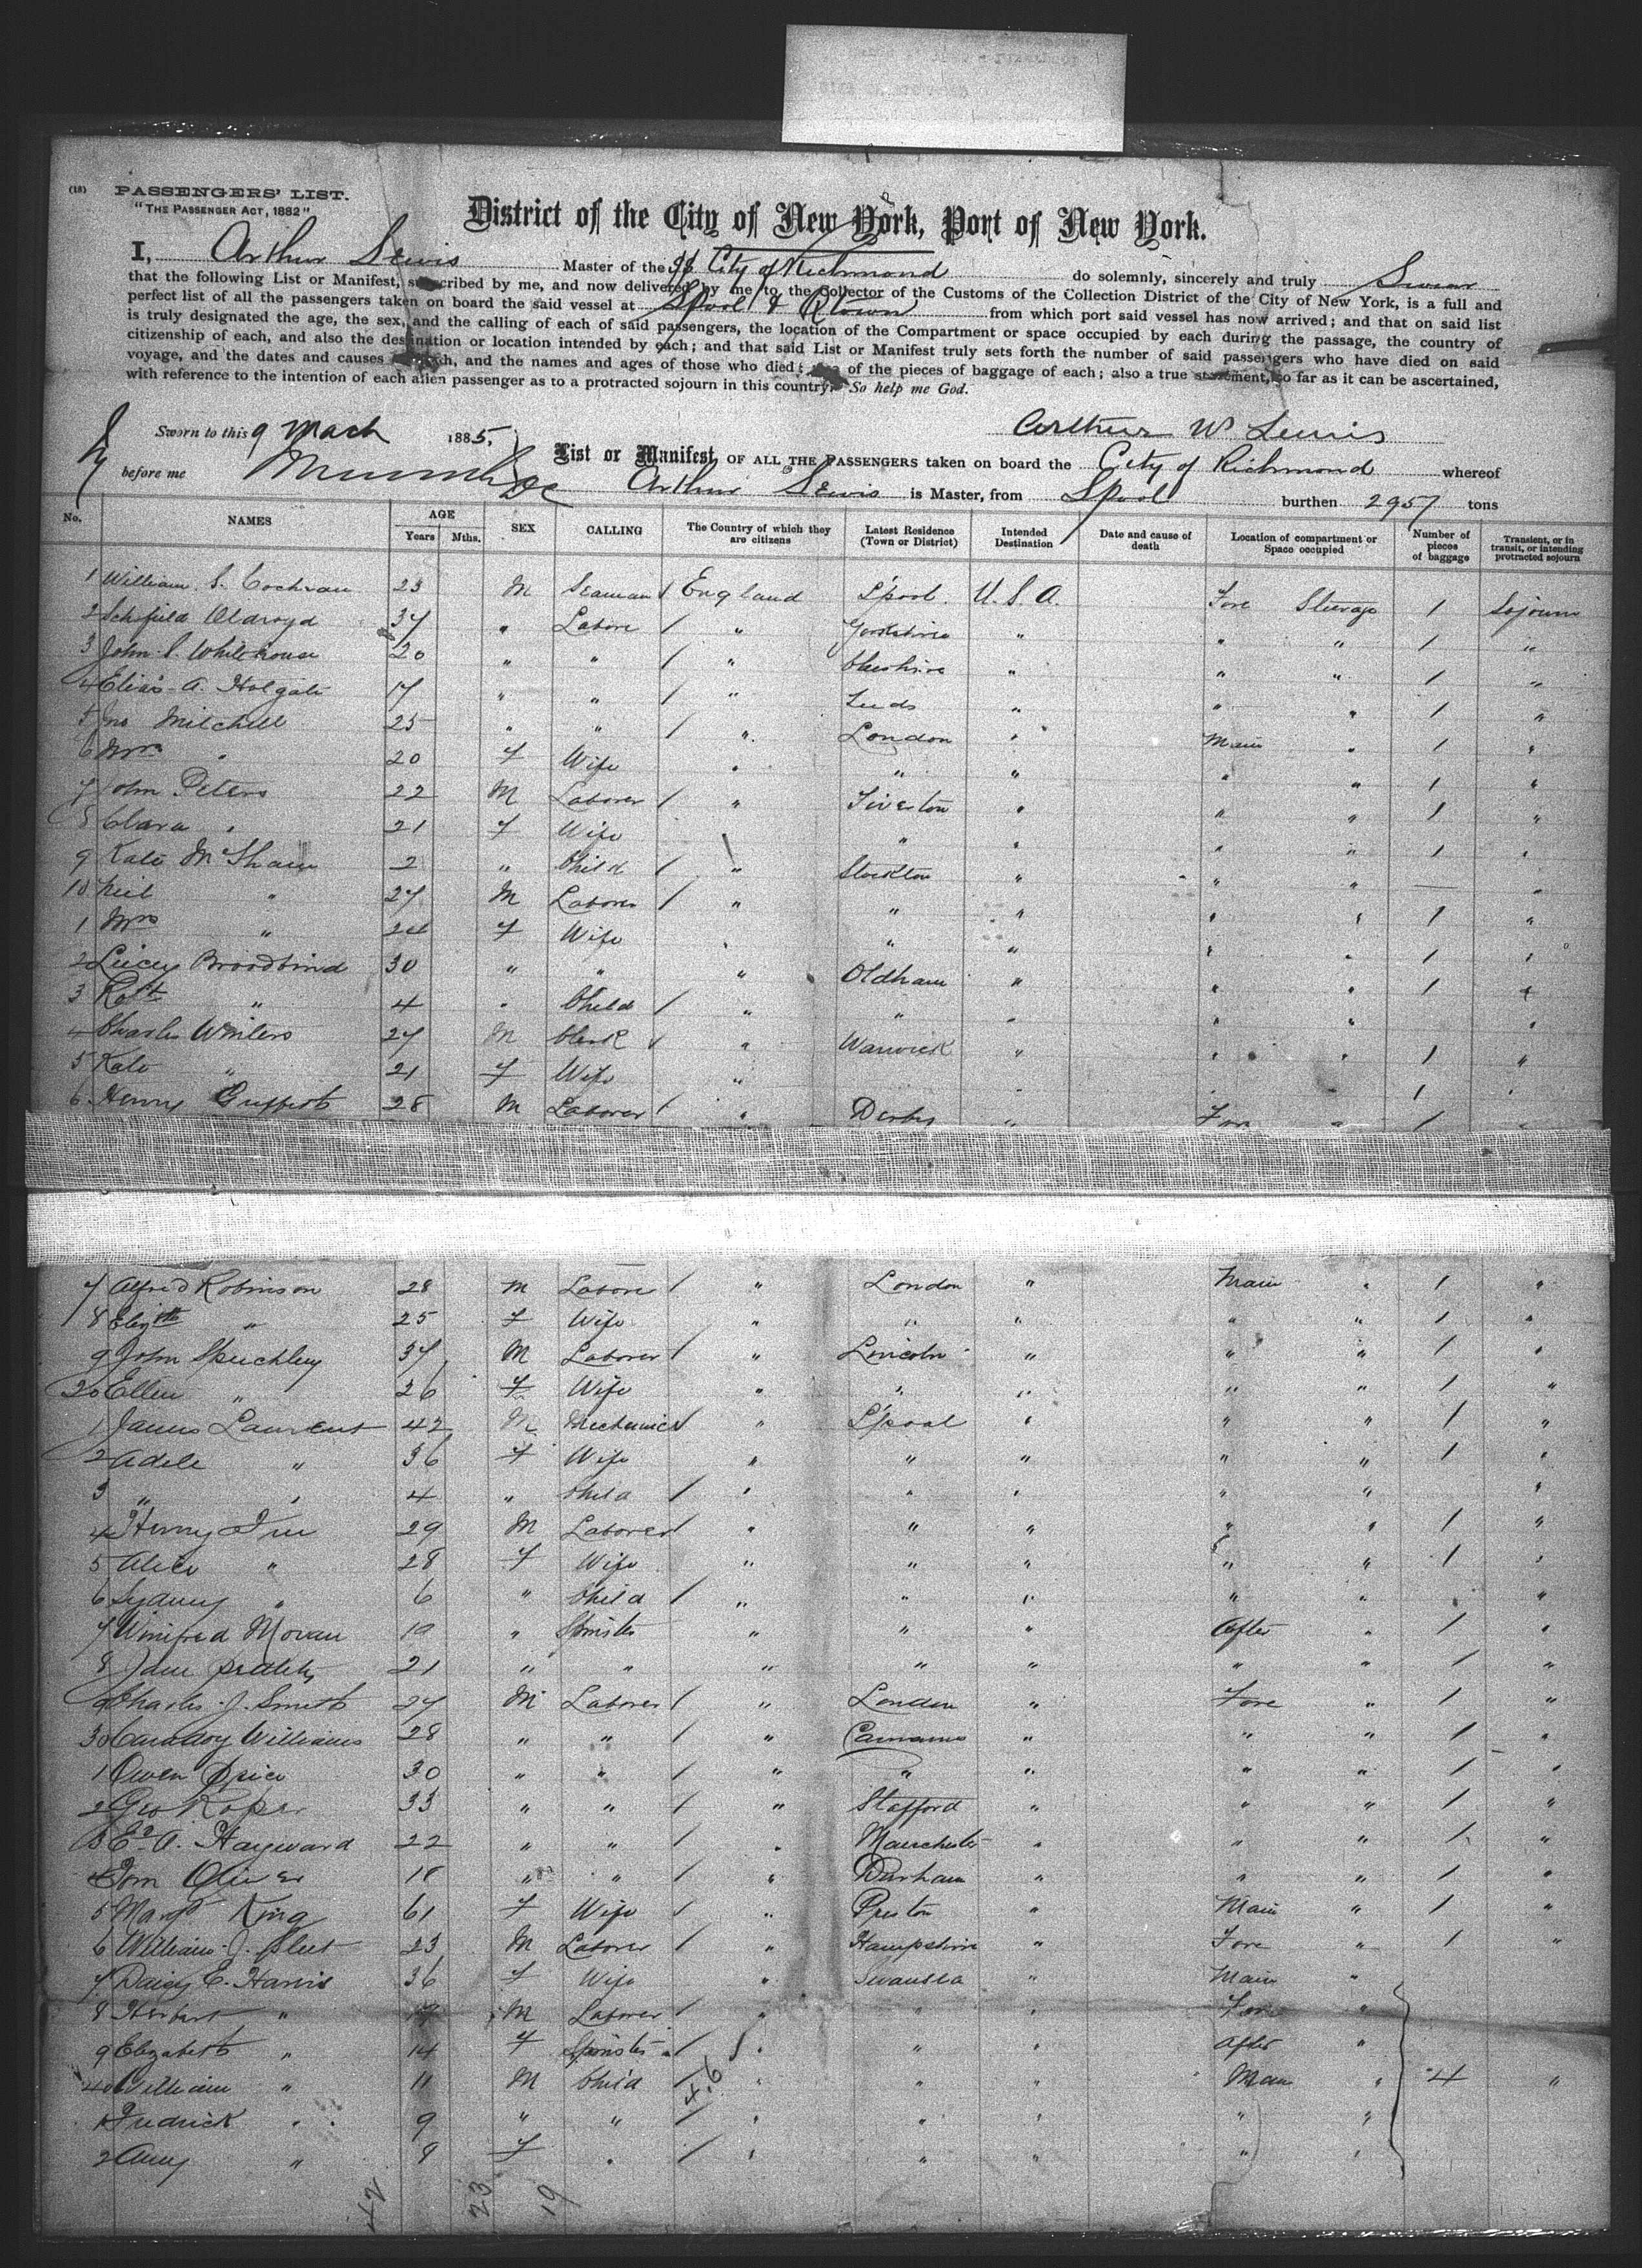 (18) PASSENGERS' LIST.
"THE PASSENGER ACT, 1882"
District of the City of New York, Port of New York.
I, Arthur Lewis Master of the SS City of Richmond do solemnly, sincerely and truly Swear
that the following List or Manifest, subscribed by me, and now delivered by me to the Collector of the Customs of the Collection District of the City of New York, is a full and
perfect list of all the passengers taken on board the said vessel at L'pool & Qtown from which port said vessel has now arrived; and that on said list
is truly designated the age, the sex, and the calling of each of said passengers, the location of the Compartment or space occupied by each during the passage, the country of
citizenship of each, and also the destination or location intended by each; and that said List or Manifest truly sets forth the number of said passengers who have died on said
voyage, and the dates and causes of death, and the names and ages of those who died; also of the pieces of baggage of each; also a true statement, so far as it can be ascertained,
with reference to the intention of each alien passenger as to a protracted sojourn in this country. So help me God.
Sworn to this 9 March 1885, Arthur W Lewis
before me
List or Manifest OF ALL THE PASSENGERS taken on board the City of Richmond whereof
Arthur Lewis is Master, from L'pool burthen 2957 tons
No. NAMES AGE Years Mths. SEX CALLING The Country of which they are citizens Latest Residence (Town or District) Intended Destination Date and cause of death Location of compartment or Space occupied Number of pieces of baggage Transient, or in transit, or intending protracted sojourn
1 William S. Cochran 23 M Seaman / England L'pool. U.S.A. Fore Steerage 1 Sojourn
2 Schofield Oldroyd 37 " Labore / " Yorkshire " " " 1 "
3 John S. Whitehouse 20 " " / " Cheshire " " " 1 "
4 Elias A. Holgate 17 " " / " Leeds " " " 1 "
5 Jno Mitchell 25 " " / " London " Main " 1 "
6 Mrs " 20 F Wife " " " " " 1 "
7 John Peters 22 M Laborer / " Tiverton " " " 1 "
8 Clara " 21 F Wife " " " " 1 "
9 Kate McShane 2 " Child / " Stockton " " " — "
10 Neil " 27 M Laborer / " " " " " 1 "
1 Mrs " 24 F Wife " " " " " 1 "
2 Lucy Broadbind 30 " " " Oldham " " " 1 "
3 Robt " 4 " Child / " " " " " "
4 Charles Winters 27 M Clerk / " Warwick " " " 1 "
5 Kate " 21 F Wife " " 1 "
6 Henry Griffith 28 M Laborer / " Derby " Fore " 1 "
7 Alfred Robinson 28 M Labore / " London " Main " 1 "
8 Elizth " 25 F Wife " " " " " 1 "
9 John Speechley 37 M Laborer / " Lincoln " " " 1 "
20 Ellen " 26 F Wife " " " " " 1 "
1 James Laurent 42 M Mechanic / " L'pool " " " 1 "
2 Adele " 36 F Wife " " " " " 1 "
3 " " 4 " Child / " " " " " "
4 Henry 29 M Laborer / " " " " " 1 "
5 Alice " 28 F Wife " " " " " 1 "
6 Sydney " 6 " Child / " " " " " "
7 Winifred Moran 19 " Spinster " " " After " 1 "
8 Jane 21 " " " " " " " 1 "
9 Charles J. Smith 27 M Laborer / " London " Fore " 1 "
30 Caradoy Williams 28 " " / " " " " 1 "
1 Owen Price 30 " " / " " " " " 1 "
2 Geo Roper 33 " " / " Stafford " " " 1 "
3 Ed A. Hayward 22 " " / " Manchester " " " 1 "
4 Tom Oliver 18 " " / " Durham " " " 1 "
5 Margt King 61 F Wife / " Preston " Main " 1 "
6 William J. Fleet 23 M Laborer / " Hampshire " Fore " 1 "
7 Daisy E. Harris 36 F Wife " Swansea " Main "
8 Herbert " M Laborer / " " " Fore "
9 Elizabeth " 14 F Spinster / " " " After "
40 William " 11 M Child / " " " Main " 4 "
1 Fredrick " 9 " " / " " " " "
2 Amy " 8 F " / " " " " "
46
42 23 19